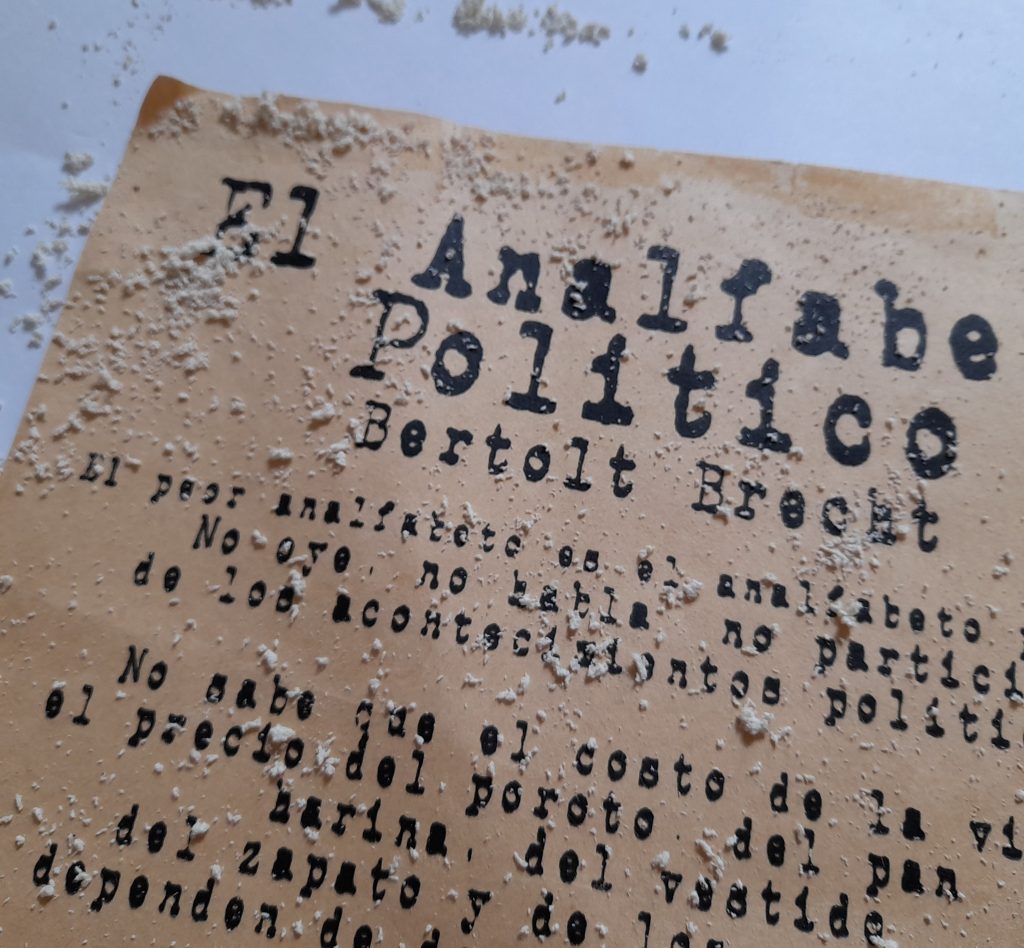 El Analfabe
Politico
Bertolt Brecht
El peor analfabeto es el analfabeto
No oye, no habla no partici
de los acontecimientos politi
No sabe que el costo de la vi
el precio del poroto. del pan
harina, del vestido
del zapato y de los
dependen de